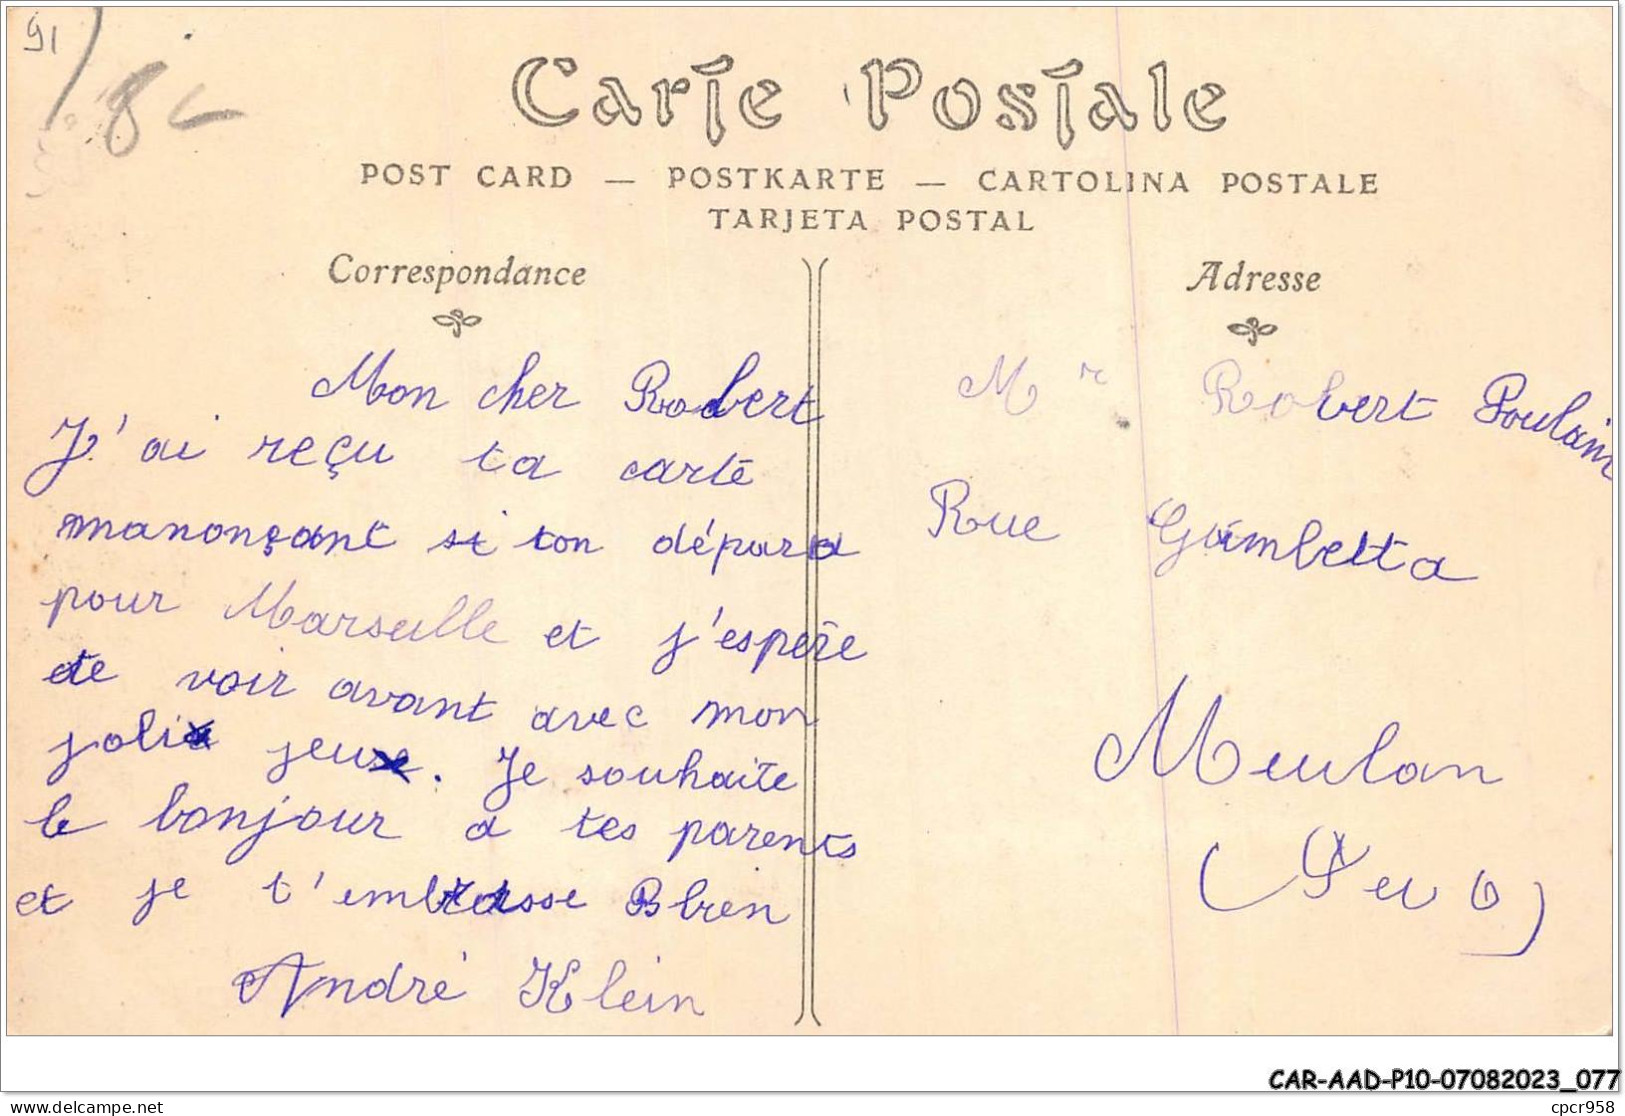 91
8c
Carte Postale
POST CARD — POSTKARTE — CARTOLINA POSTALE
TARJETA POSTAL
Correspondance
Adresse
Mon cher Robert
J'ai reçu ta carte
manonçant si ton dépard
pour Marseille et j'espère
te voir avant avec mon
joli jeu. Je souhaite
le bonjour a tes parents
et je t'embrasse Bbien
André Klein
Mr Robert Poulain
Rue Gambetta
Meulan
CAR-AAD-P10-07082023_077
delcampe.net
cpcr958